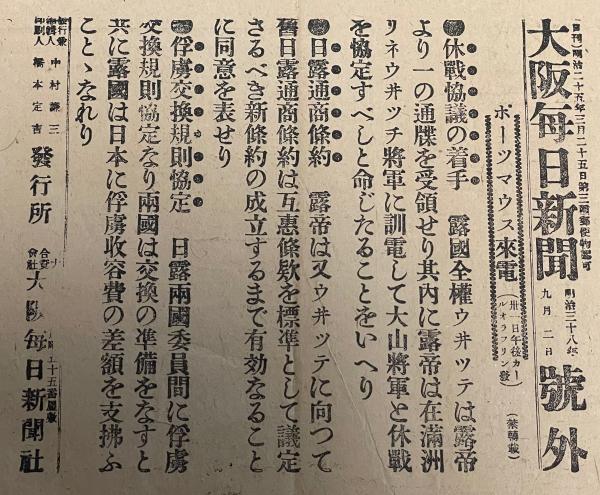 (日刊)明治二十五年三月二十五日第三種郵便物認可
大阪毎日新聞
明治三十八年
九月二日
號外
ポーツマウス來電
(卅一日午後カールオラフリン發)
(禁轉載)
●休戰協議の着手 露國全權ウ井ッテは露帝
より一の通牒を受領せり其内に露帝は在滿洲
リネウ井ツチ將軍に訓電して大山將軍と休戰
を協定すべしと命じたることをいへり
●日露通商條約 露帝は又ウ井ッテに向つて
舊日露通商條約は互惠條欵を標準として議定
さるべき新條約の成立するまで有効なること
に同意を表せり
●俘虜交換規則協定 日露兩國委員間に俘虜
交換規則協定なり兩國は交換の準備をなすと
共に露國は日本に俘虜收容費の差額を支拂ふ
ことゝなれり
發行兼
編輯人 中村謙三
印刷人 橋本定吉
發行所
合資
會社
大阪毎日新聞社